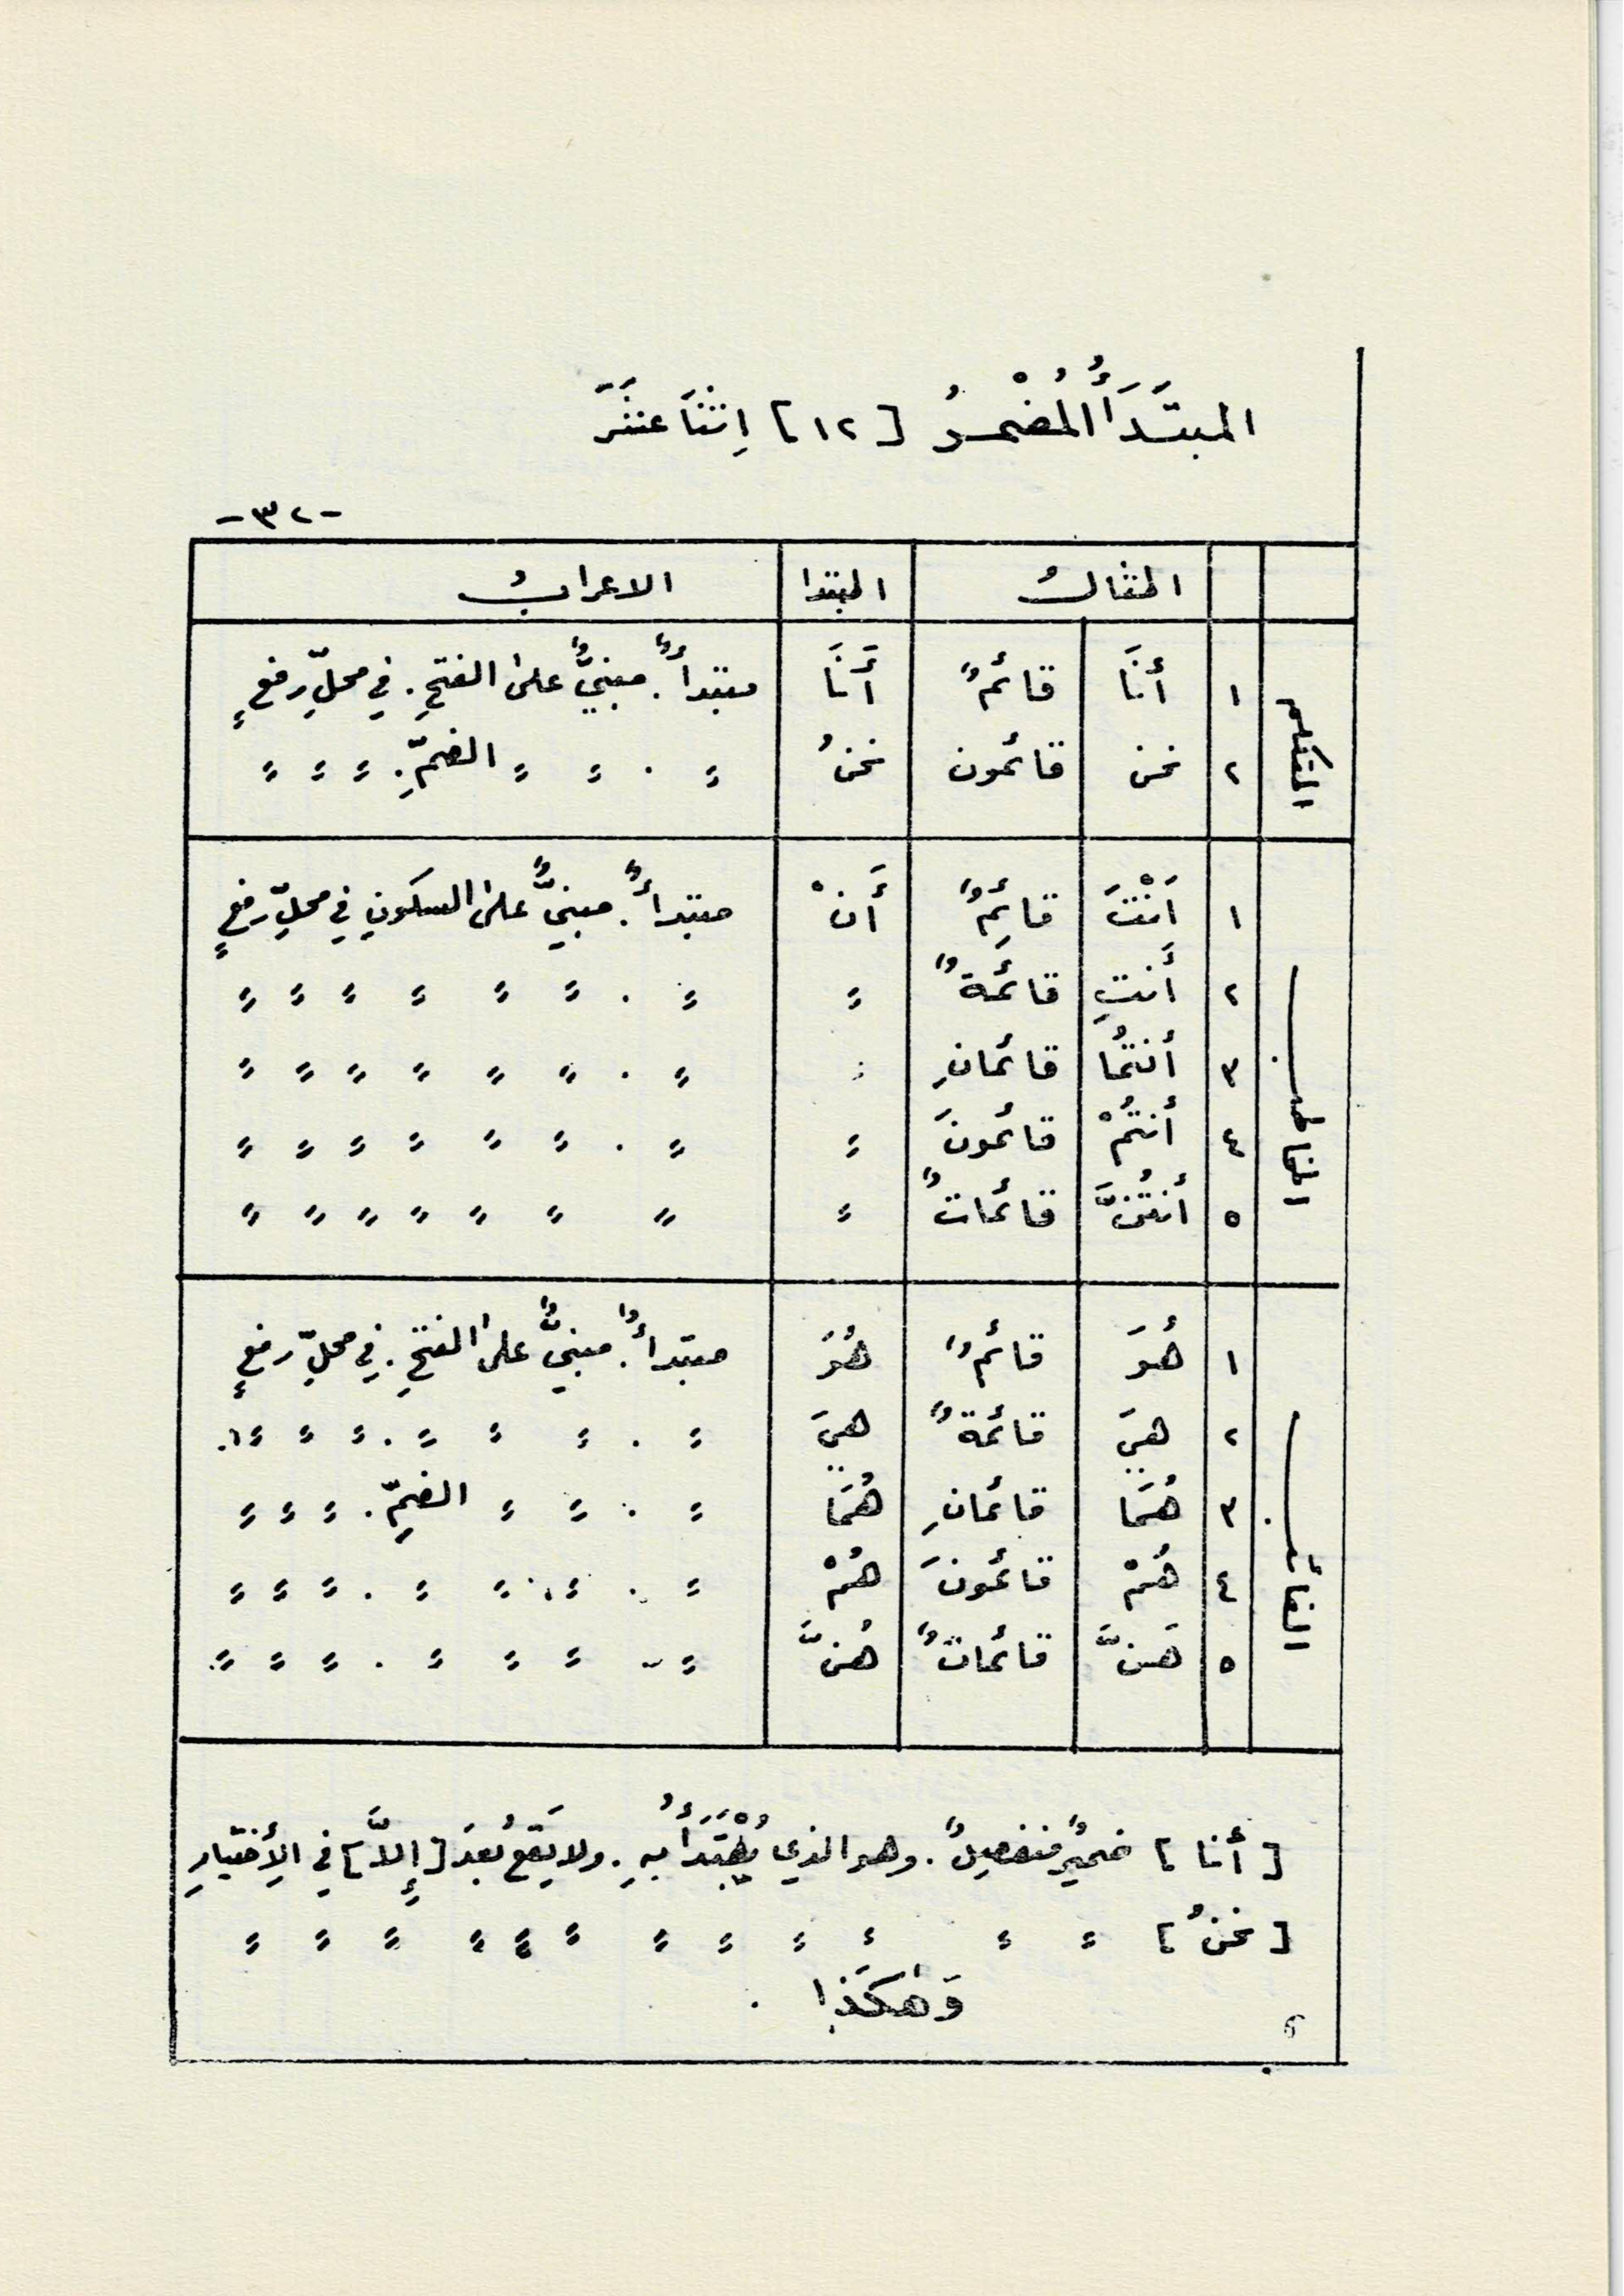 المبتَدَأُ المُضْمرُ [١٢] اِثْنَا عَشَرَ
-٣٢-
المثالُ المبتدا الاعرابُ
المتكلم
١ أنَا قائمٌ أَنَا مبتدأٌ. مبنيٌّ على الفتحِ. في محلِّ رفعٍ
٢ نحن قائمون نحنُ ⹀ . ⹀ ⹀ الضمِّ. ⹀ ⹀ ⹀
المخاطب
١ اَنْتَ قائِمٌ أَنْ مبتدأٌ. مبنيٌّ على السكونِ في محلِّ رفعٍ
٢ أَنتِ قائمةٌ ⹀ ⹀ . ⹀ ⹀ ⹀ ⹀ ⹀ ⹀
٣ أنتُما قائمانِ ⹀ ⹀ . ⹀ ⹀ ⹀ ⹀ ⹀ ⹀
٤ أنتُمْ قائمونَ ⹀ ⹀ . ⹀ ⹀ ⹀ ⹀ ⹀ ⹀
٥ أنتُنَّ قائماتٌ ⹀ ⹀ ⹀ ⹀ ⹀ ⹀ ⹀ ⹀
الغائب
١ هُوَ قائمٌ هُوَ مبتدأٌ. مبنيٌّ على الفتحِ. في محلِّ رفعٍ
٢ هيَ قائمةٌ هيَ ⹀ . ⹀ ⹀ ⹀ . ⹀ ⹀ ⹀
٣ هُمَا قائمانِ هُمَا ⹀ . ⹀ ⹀ الضمِّ. ⹀ ⹀ ⹀
٤ هُمْ قائمونَ هُمْ ⹀ . ⹀ ⹀ ⹀ . ⹀ ⹀ ⹀
٥ هَنَّ قائماتٌ هُنَّ ⹀ ⹀ ⹀ ⹀ . ⹀ ⹀ ⹀
[أنا] ضميرٌ منفصلٌ. وهو الذي يُبْتَدَأُ بهِ. ولا يَقعُ بعدَ [إِلاَّ] في الأِختيارِ
[نحنُ] ⹀ ⹀ ⹀ ⹀ ⹀ ⹀ ⹀ ⹀ ⹀ ⹀ ⹀ ⹀
وَهٰكَذا .